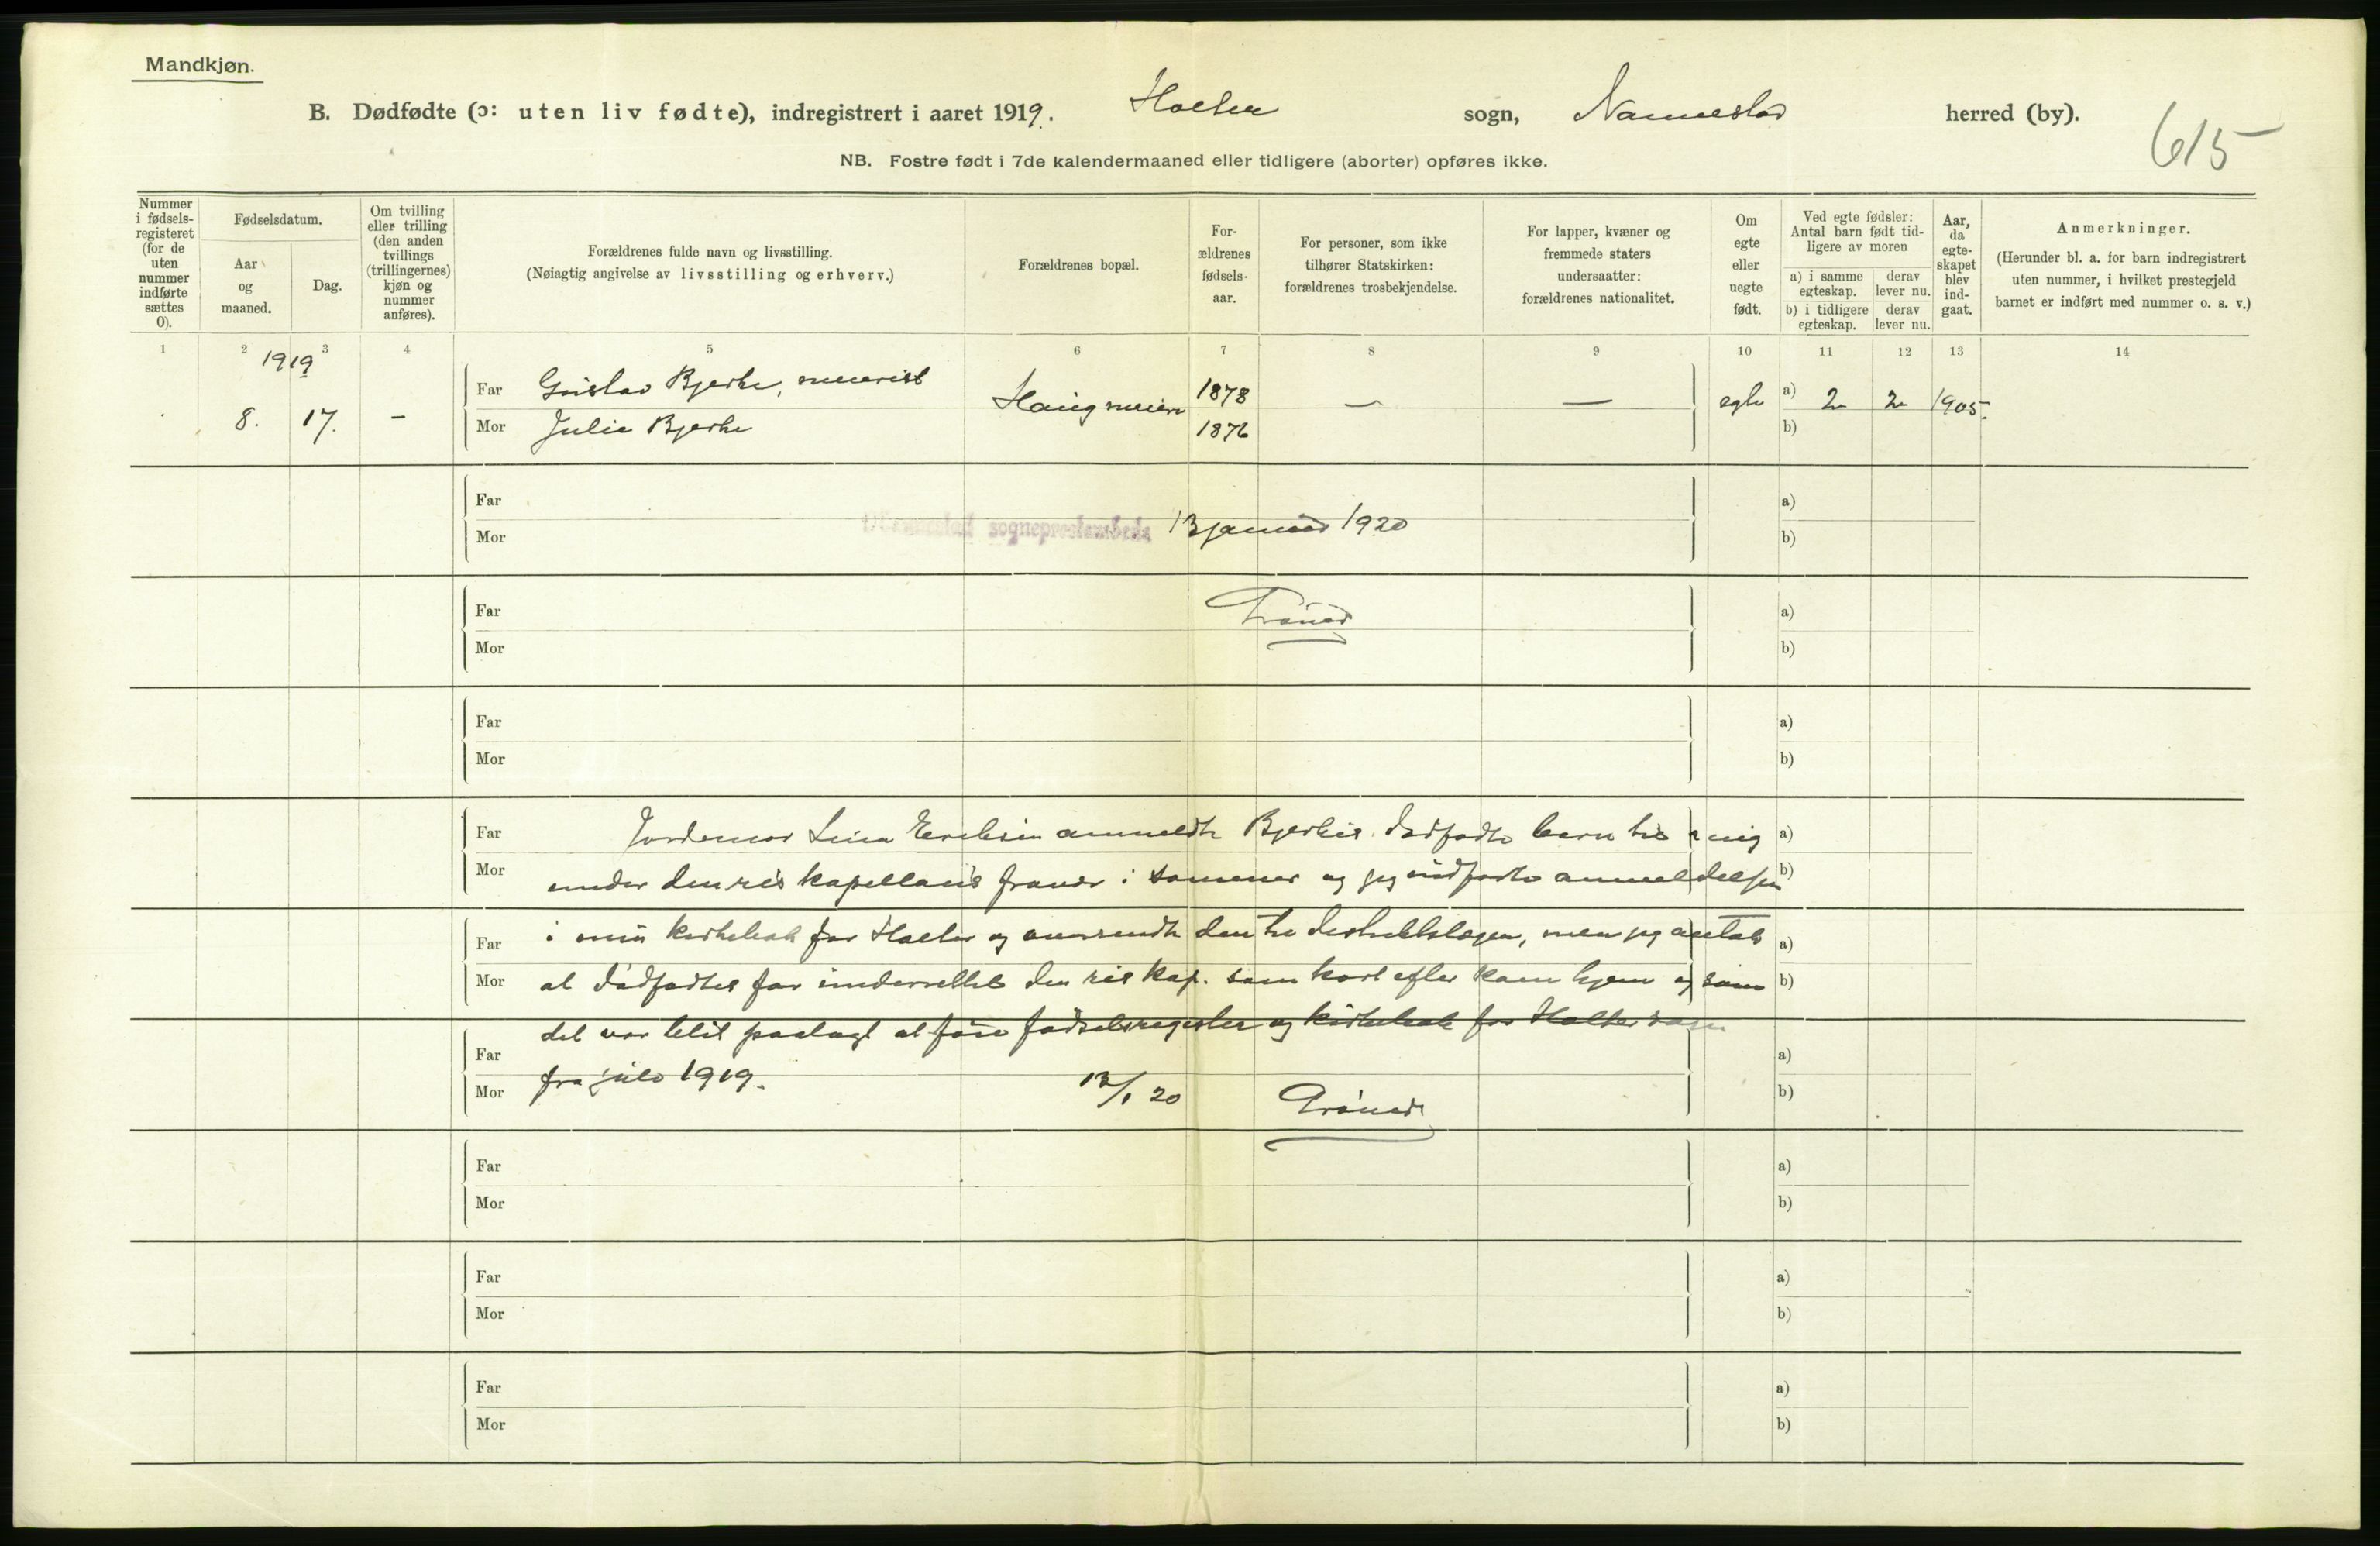 Mandkjøn.
B. Dødfødte (ɔ: uten liv fødte), indregistrert i aaret 1919. Holter sogn, Nannestad herred (by).
615
NB. Fostre født i 7de kalendermaaned eller tidligere (aborter) opføres ikke.
Nummer i fødsels-registeret (for de uten nummer indførte sættes 0).
Fødselsdatum.
Aar og maaned.
Dag.
Om tvilling eller trilling (den anden tvillings (trillingernes) kjøn og nummer anføres).
Forældrenes fulde navn og livsstilling.
(Nøiagtig angivelse av livsstilling og erhverv.)
Forældrenes bopæl.
For-ældrenes fødsels-aar.
For personer, som ikke tilhører Statskirken: forældrenes trosbekjendelse.
For lapper, kvæner og fremmede staters undersaatter: forældrenes nationalitet.
Om egte eller uegte født.
Ved egte fødsler: Antal barn født tid-ligere av moren
a) i samme egteskap. derav lever nu.
b) i tidligere egteskap. derav lever nu.
Aar, da egte-skapet blev ind-gaat.
Anmerkninger.
(Herunder bl. a. for barn indregistrert uten nummer, i hvilket prestegjeld barnet er indført med nummer o. s. v.)
1 2 3 4 5 6 7 8 9 10 11 12 13 14
1919
8. 17. – Far Gustav Bjerke, meierist Haug meieri 1878 — — egte a) 2 2 1905.
Mor Julie Bjerke 1876 b)
Far a)
sogneprestembede 13 januar 1920
Mor b)
Far a)
Mor b)
Far a)
Mor b)
Far Jordemor Lina Eriksen anmeldte Bjerkes dødfødte barn til mig a)
Mor under den res kapellans fravær i sommer og jeg indførte anmeldelsen b)
Far i min kirkebok for Holter og oversendte den til distriktslægen, men jeg antok a)
Mor at dødfødtes far underrettet den res kap. som kort efter kom hjem og som b)
det var blit paalagt at føre fødselsregister og kirkebok for Holter sogn
Far a)
fra juli 1919. 13/1 20
Mor b)
Far a)
Mor b)
Far a)
Mor b)
Far a)
Mor b)